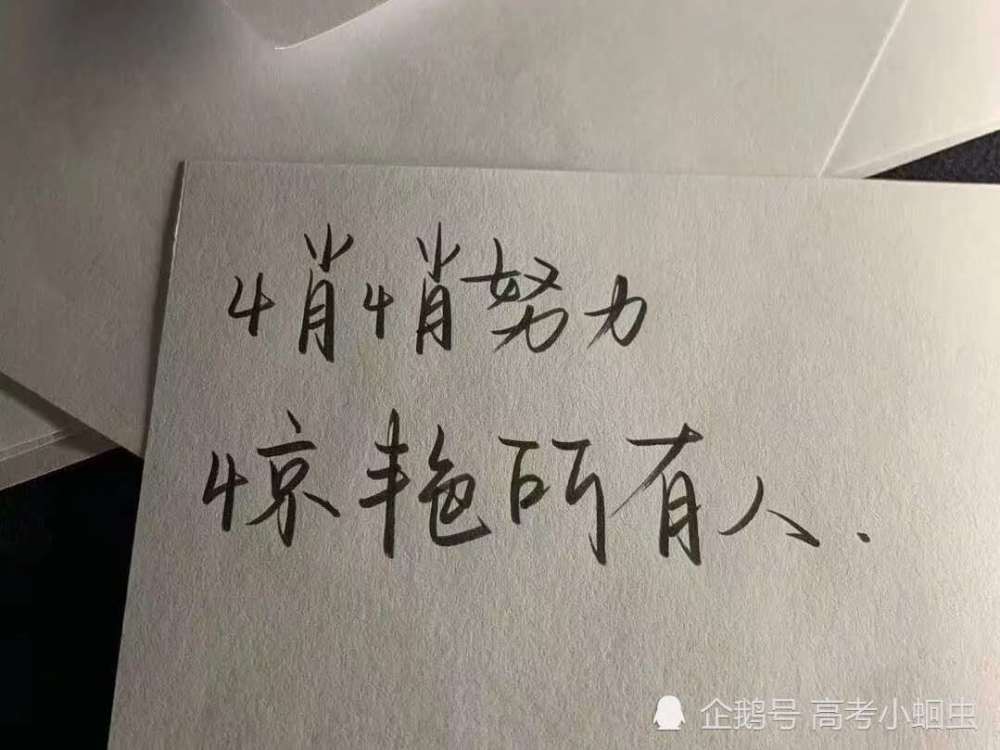 悄悄努力
惊艳所有人.
企鹅号 高考小蛔虫